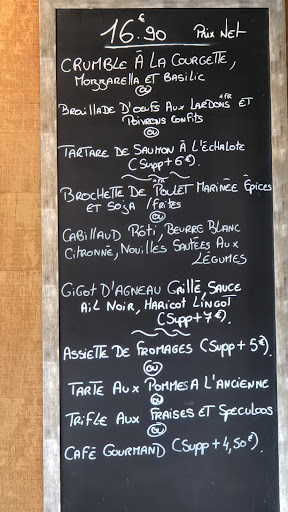 16.€90 Prix Net
CRUMBLE À LA COURGETTE,
MOZZARELLA ET BASILIC
OU
BROUILLADE D'OEUFS AUX LARDONS ET
POIVRONS CONFITS
OU
TARTARE DE SAUMON À L'ÉCHALOTE
(SUPP+6€).
BROCHETTE DE POULET MARINÉE ÉPICES
ET SOJA /FRITES
OU
CABILLAUD RÔTI, BEURRE BLANC
CITRONNÉ, NOUILLES SAUTÉES AUX
LÉGUMES
GIGOT D'AGNEAU GRILLÉ, SAUCE
AIL NOIR, HARICOT LINGOT
(SUPP+7€).
ASSIETTE DE FROMAGES (SUPP+5€).
OU
TARTE AUX POMMES A L'ANCIENNE
OU
TRIFLE AUX FRAISES ET SPECULOOS
OU
CAFÉ GOURMAND (SUPP+4,50€).